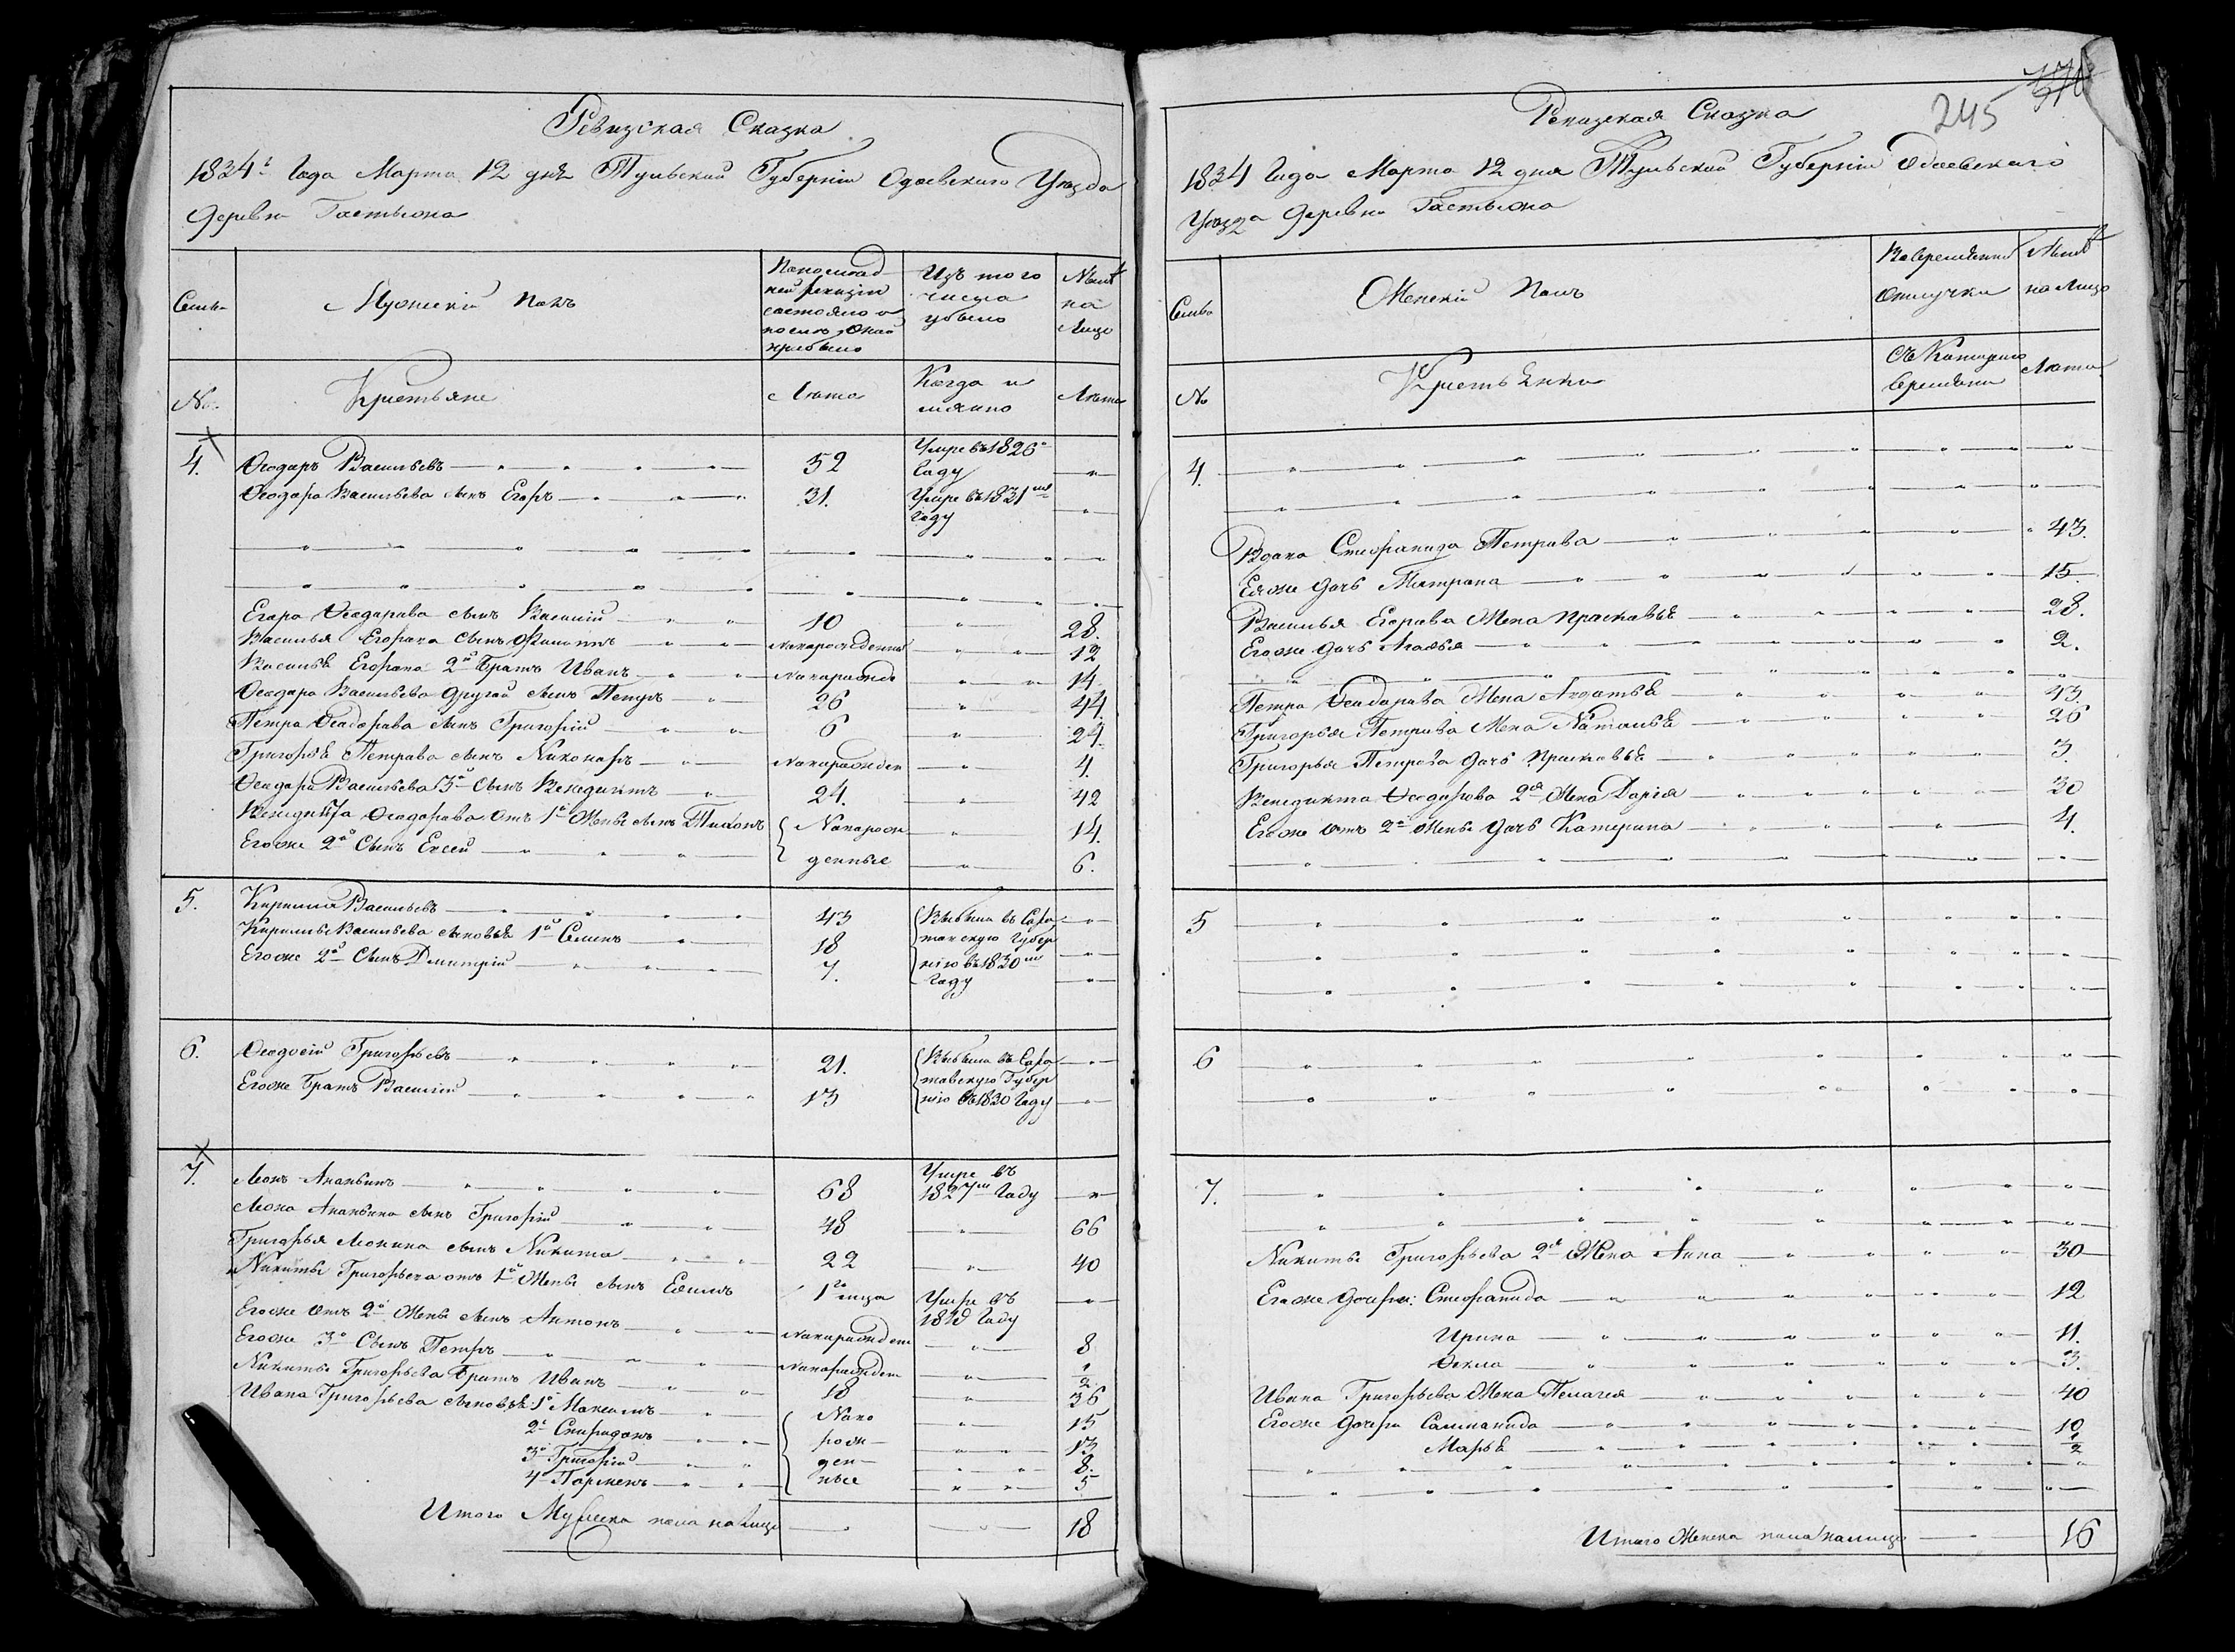 Ревизская Сказка
1834г Года Марта 12 дня Тульской Губернiи Одоевского Уезда
Деревни
Семьи
Мужеский полъ
По последней ревизiи состояло и после оной прибыло
Изъ того числа убыло
Ныне на Лицо
№
Крестьяне
Лета
Когда и имянно
Лета
4. Феодаръ Васильевъ 52 Умре въ 1826м Году
Феодара Васильева сынъ Егаръ 31. Умре въ 1831м Году
Егара Феодарава сынъ Василiй 10 28.
Василья Егорава сынъ Филиппъ Новарожденный 12
Василья Егорава 2й Братъ Иванъ Новарожде 14
Феодара Васильева другой сынъ Петръ 26 44.
Петра Феодорава сынъ Григорiй 6 24.
Григорья Петрава сынъ Никоноръ Новарожден 4.
Феодара Васильева 3й сынъ Венедиктъ 24. 42
Венедикта Феодорава отъ 1й Жены сынъ Тихонъ Новарож 14.
Егоже 2й Сынъ Евсей денные 6.
5. Кирилла Васильевъ 43 Выбыли въ Сара
Кирилы Васильева сыновья 1й Семенъ 18 товскую Губер
Егоже 2й Сынъ Дмитрiй 7. нiю въ 1830м Году
6. Феодосiй Григорьевъ 21. Выбыли въ Сара
товскую Губер
Егоже Братъ Василiй 13 нiю въ 1830 Году
7. Леонъ Ананьинъ 68 Умре въ 1827м Году
Леона Ананьина сынъ Григорiй 48 66
Григорья Леонина сынъ Никита 22 40
Никиты Григорьева отъ 1й Жены сынъ Ефимъ 1го месца Умре въ 1818 Году
Егоже отъ 2й Жены сынъ Антонъ Новарожден 8
Егоже 3й Сынъ Петръ Новарожден 1/2
Никиты Григорьева Братъ Иванъ 18 36
Ивана Григорьева сыновья 1й Максимъ Ново 15
2й Спиридонъ рож 13
3й Григорiй ден 8.
4й Парменъ ные 5
Итого Мужеска пола на лицо 18
245
Ревизская Сказка
1834 Года Марта 12 дня Тульской Губернiи Одоевскаго
Уезда Деревни
Семьи
Женскiй Полъ
Во временной отлучки
Ныне на Лицо
№
Крестьянки
Съ Котораго времени
Лета
4.
Вдава Стефанида Петрава 43.
Еяже дочь Матрана 15.
Василья Егорава Жена Прасковья 28.
Егоже дочь Агафья 2.
Петра Феодарава Жена Агафья 43
Григорья Петрава Жена Наталья 26
Григорья Петрова дочь Прасковья 3.
Венедикта Феодарова 2я Жена Дарiя 30
Егоже отъ 2й Жены дочь Катерина 4.
5
6
7.
Никиты Григорьева 2я Жена Анна 30
Егоже дочери: Стефанида 12
Ирина 11.
Фекла 3.
Ивана Григорьева Жена Пелагея 40
Егоже дочери Саламанида 10
Марья 1/2
Итого Женска пола налицо 16